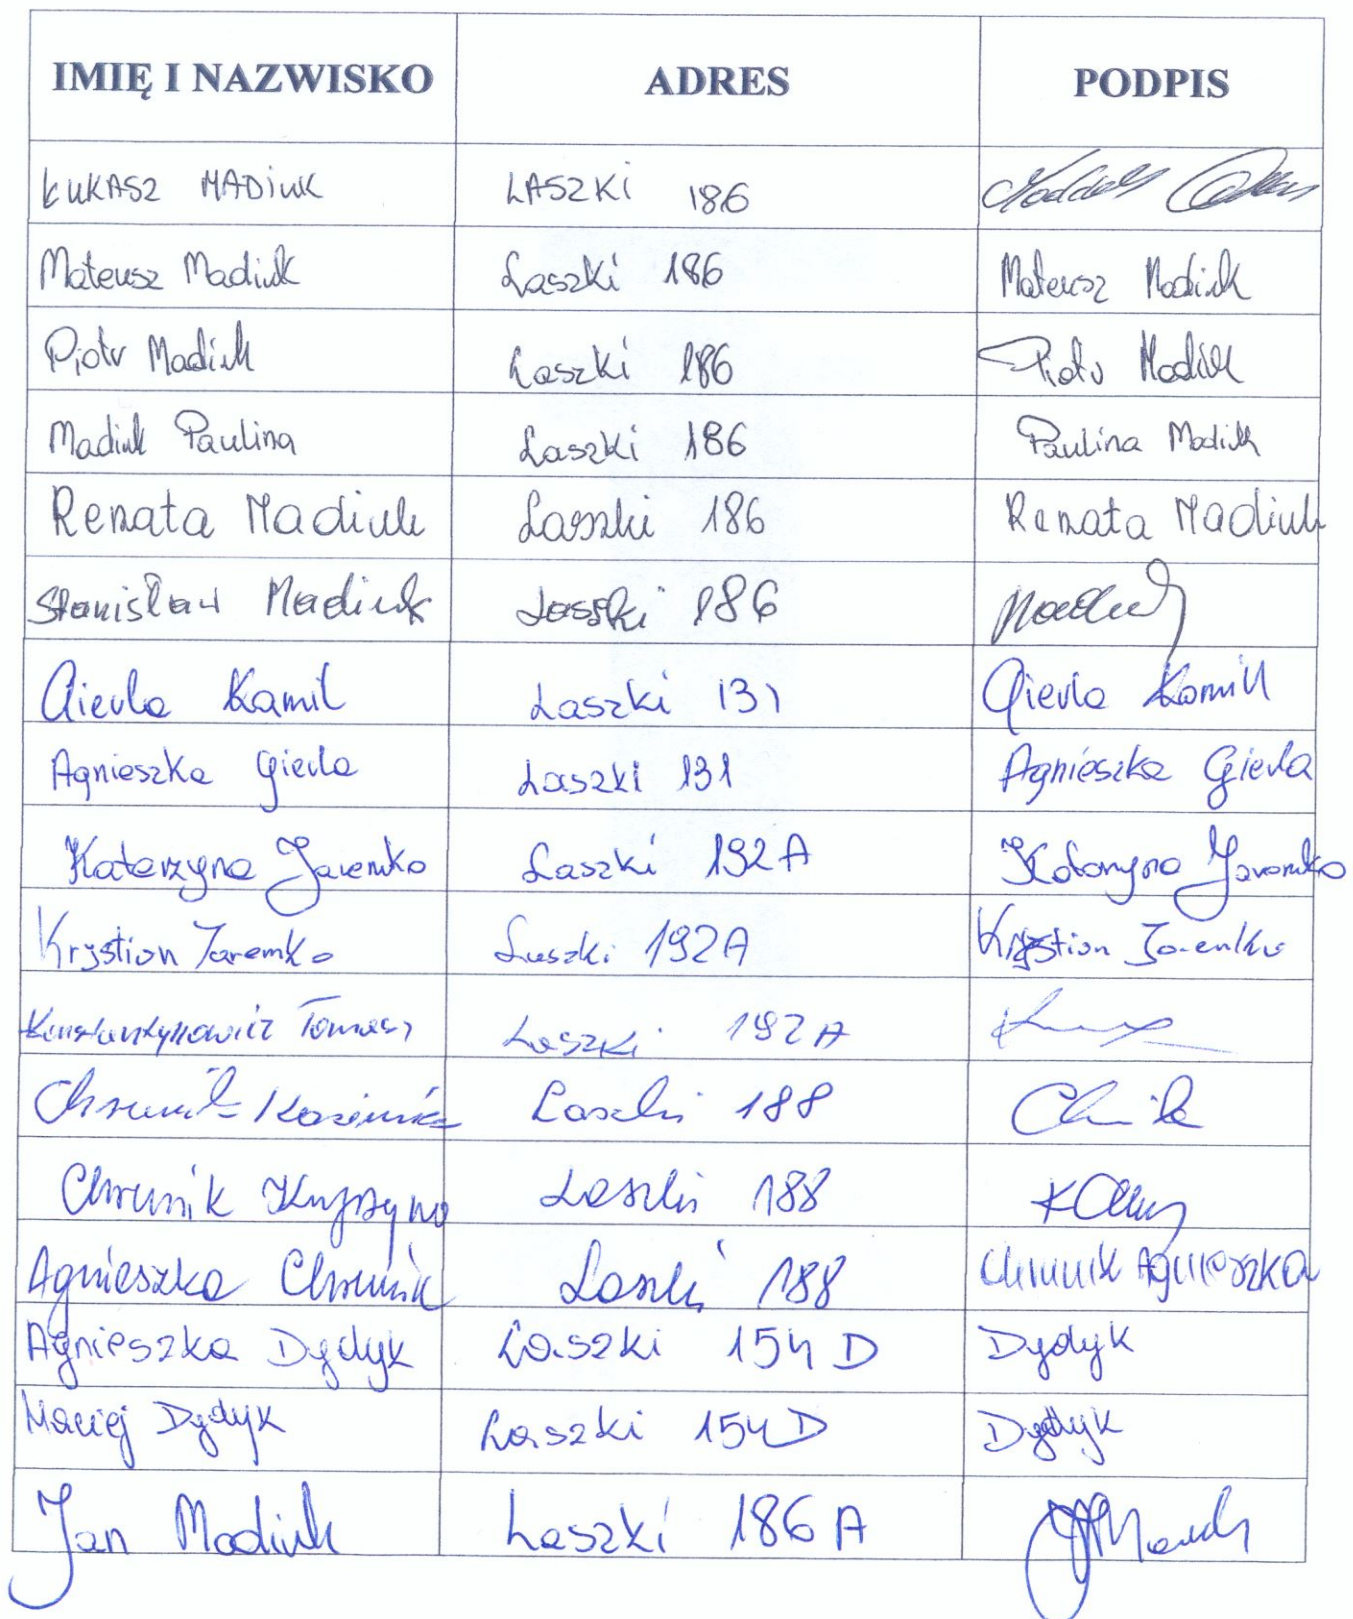 IMIĘ I NAZWISKO ADRES PODPIS
ŁUKASZ MADIUK LASZKI 186
Mateusz Madiuk Laszki 186 Mateusz Madiuk
Piotr Madiuk Laszki 186 Piotr Madiuk
Madiuk Paulina Laszki 186 Paulina Madiuk
Renata Madiuk Laszki 186 Renata Madiuk
Stanisław Madiuk Laszki 186 Madiuk
Gierla Kamil Laszki 131 Gierla Kamil
Agnieszka Gierla Laszki 131 Agnieszka Gierla
Katarzyna Jaremko Laszki 192A Katarzyna Jaremko
Krystian Jaremko Laszki 192A Krystian Jaremko
Konstantynowicz Tomasz Laszki 192A
Chrunik Kazimierz Laszki 188
Chrunik Krystyna Laszki 188
Agnieszka Chrunik Laszki 188 Chrunik Agnieszka
Agnieszka Dydyk Laszki 154D Dydyk
Maciej Dydyk Laszki 154D Dydyk
Jan Madiuk Laszki 186A